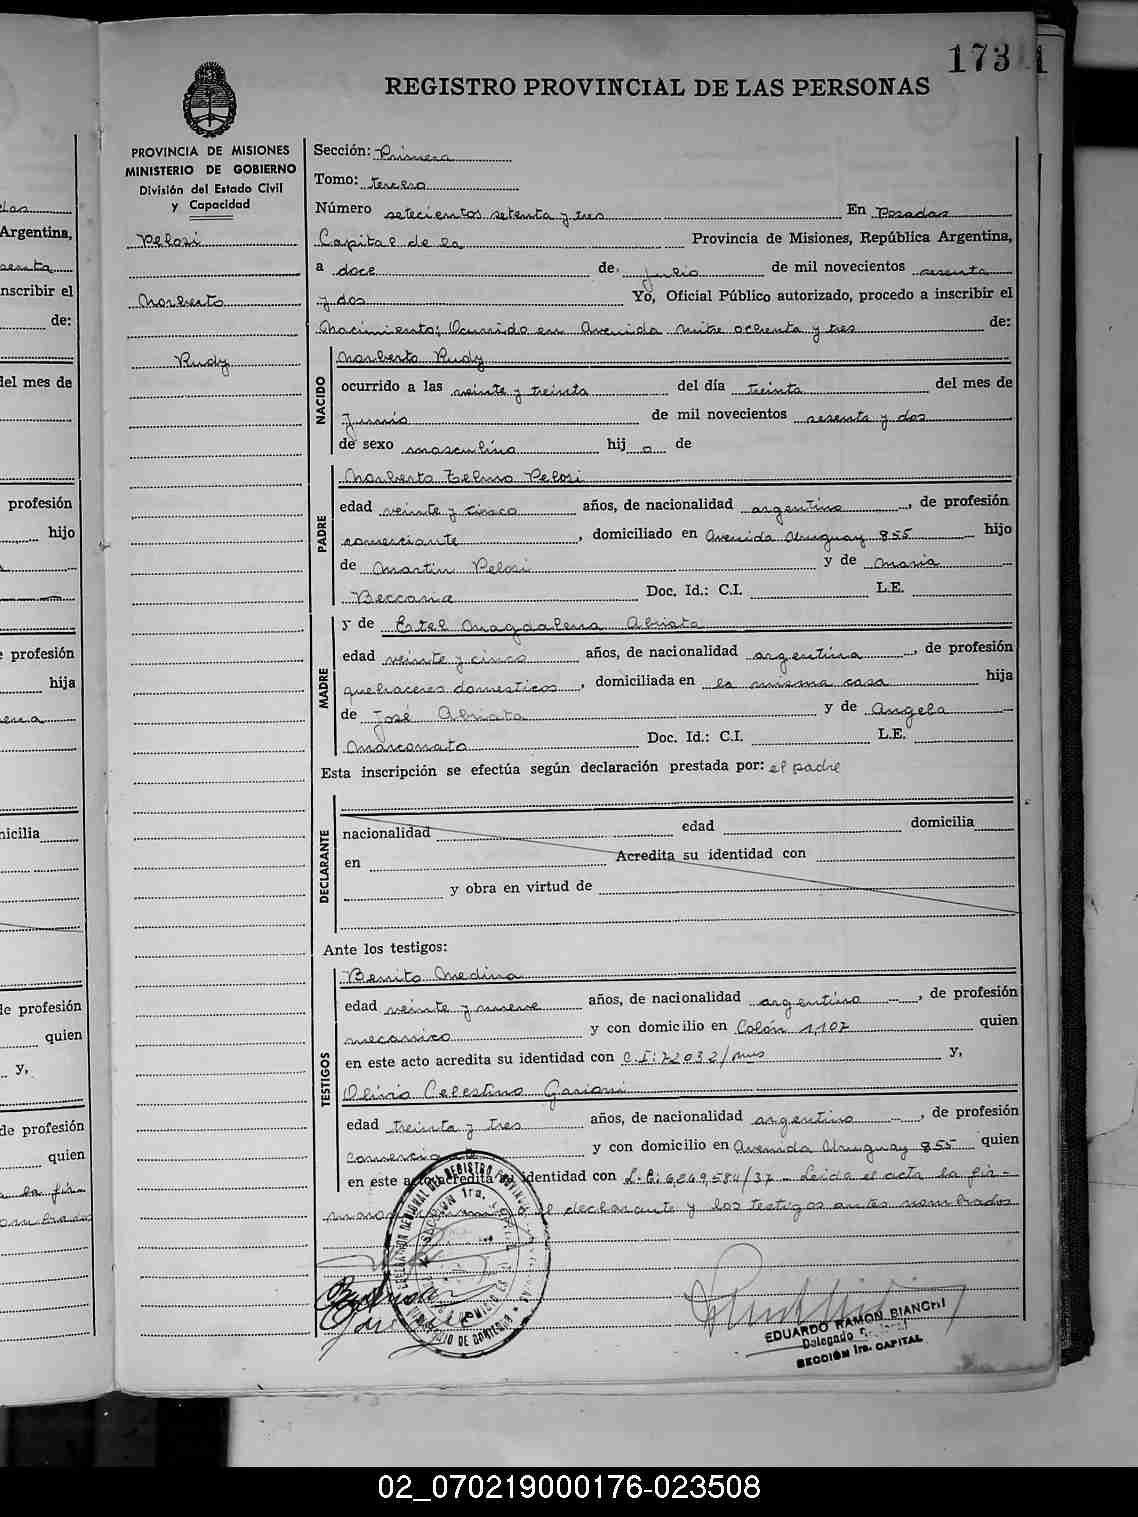 173
1
REGISTRO PROVINCIAL DE LAS PERSONAS
PROVINCIA DE MISIONES
MINISTERIO DE GOBIERNO
División del Estado Civil
y Capacidad
Pelosi
Norberto
Rudy
Sección: Primera
Tomo: tercero
Número setecientos setenta y tres En Posadas
Capital de la Provincia de Misiones, República Argentina,
a doce de julio de mil novecientos sesenta
y dos Yo, Oficial Público autorizado, procedo a inscribir el
Nacimiento; Ocurrido en Avenida Mitre ochenta y tres de:
NACIDO
Norberto Rudy
ocurrido a las veinte y treinta del día treinta del mes de
Junio de mil novecientos sesenta y dos
de sexo masculino hij o de
PADRE
Norberto Telmo Pelosi
edad veinte y cinco años, de nacionalidad argentino, de profesión
comerciante, domiciliado en Avenida Uruguay 855 hijo
de Martin Pelosi y de Maria
Beccaria Doc. Id.: C.I. L.E.
MADRE
y de Estel Magdalena Abriata
edad veinte y cinco años, de nacionalidad argentina, de profesión
quehaceres domesticos, domiciliada en la misma casa hija
de José Abriata y de Angela
Marconato Doc. Id.: C.I. L.E.
Esta inscripción se efectúa según declaración prestada por: el padre
DECLARANTE
nacionalidad edad domicilia
en Acredita su identidad con
y obra en virtud de
Ante los testigos:
TESTIGOS
Benito Medina
edad veinte y nueve años, de nacionalidad argentino, de profesión
mecanico y con domicilio en Colón 1107 quien
en este acto acredita su identidad con C.I: 72032/mns y,
Olivio Celestino
edad treinta y tres años, de nacionalidad argentino, de profesión
y con domicilio en Avenida Uruguay 855 quien
en este acto acredita su identidad con 6,869,584/37 - Leida el acta la fir-
el declarante y los testigos antes nombrados
SECCION 1ra.
EDUARDO RAMON BIANCHI
Delegado
SECCIÓN 1ra. CAPITAL
Argentina,
inscribir el
de:
del mes de
profesión
hijo
profesión
hija
de profesión
quien
y,
de profesión
quien
la fir-
02_070219000176-023508